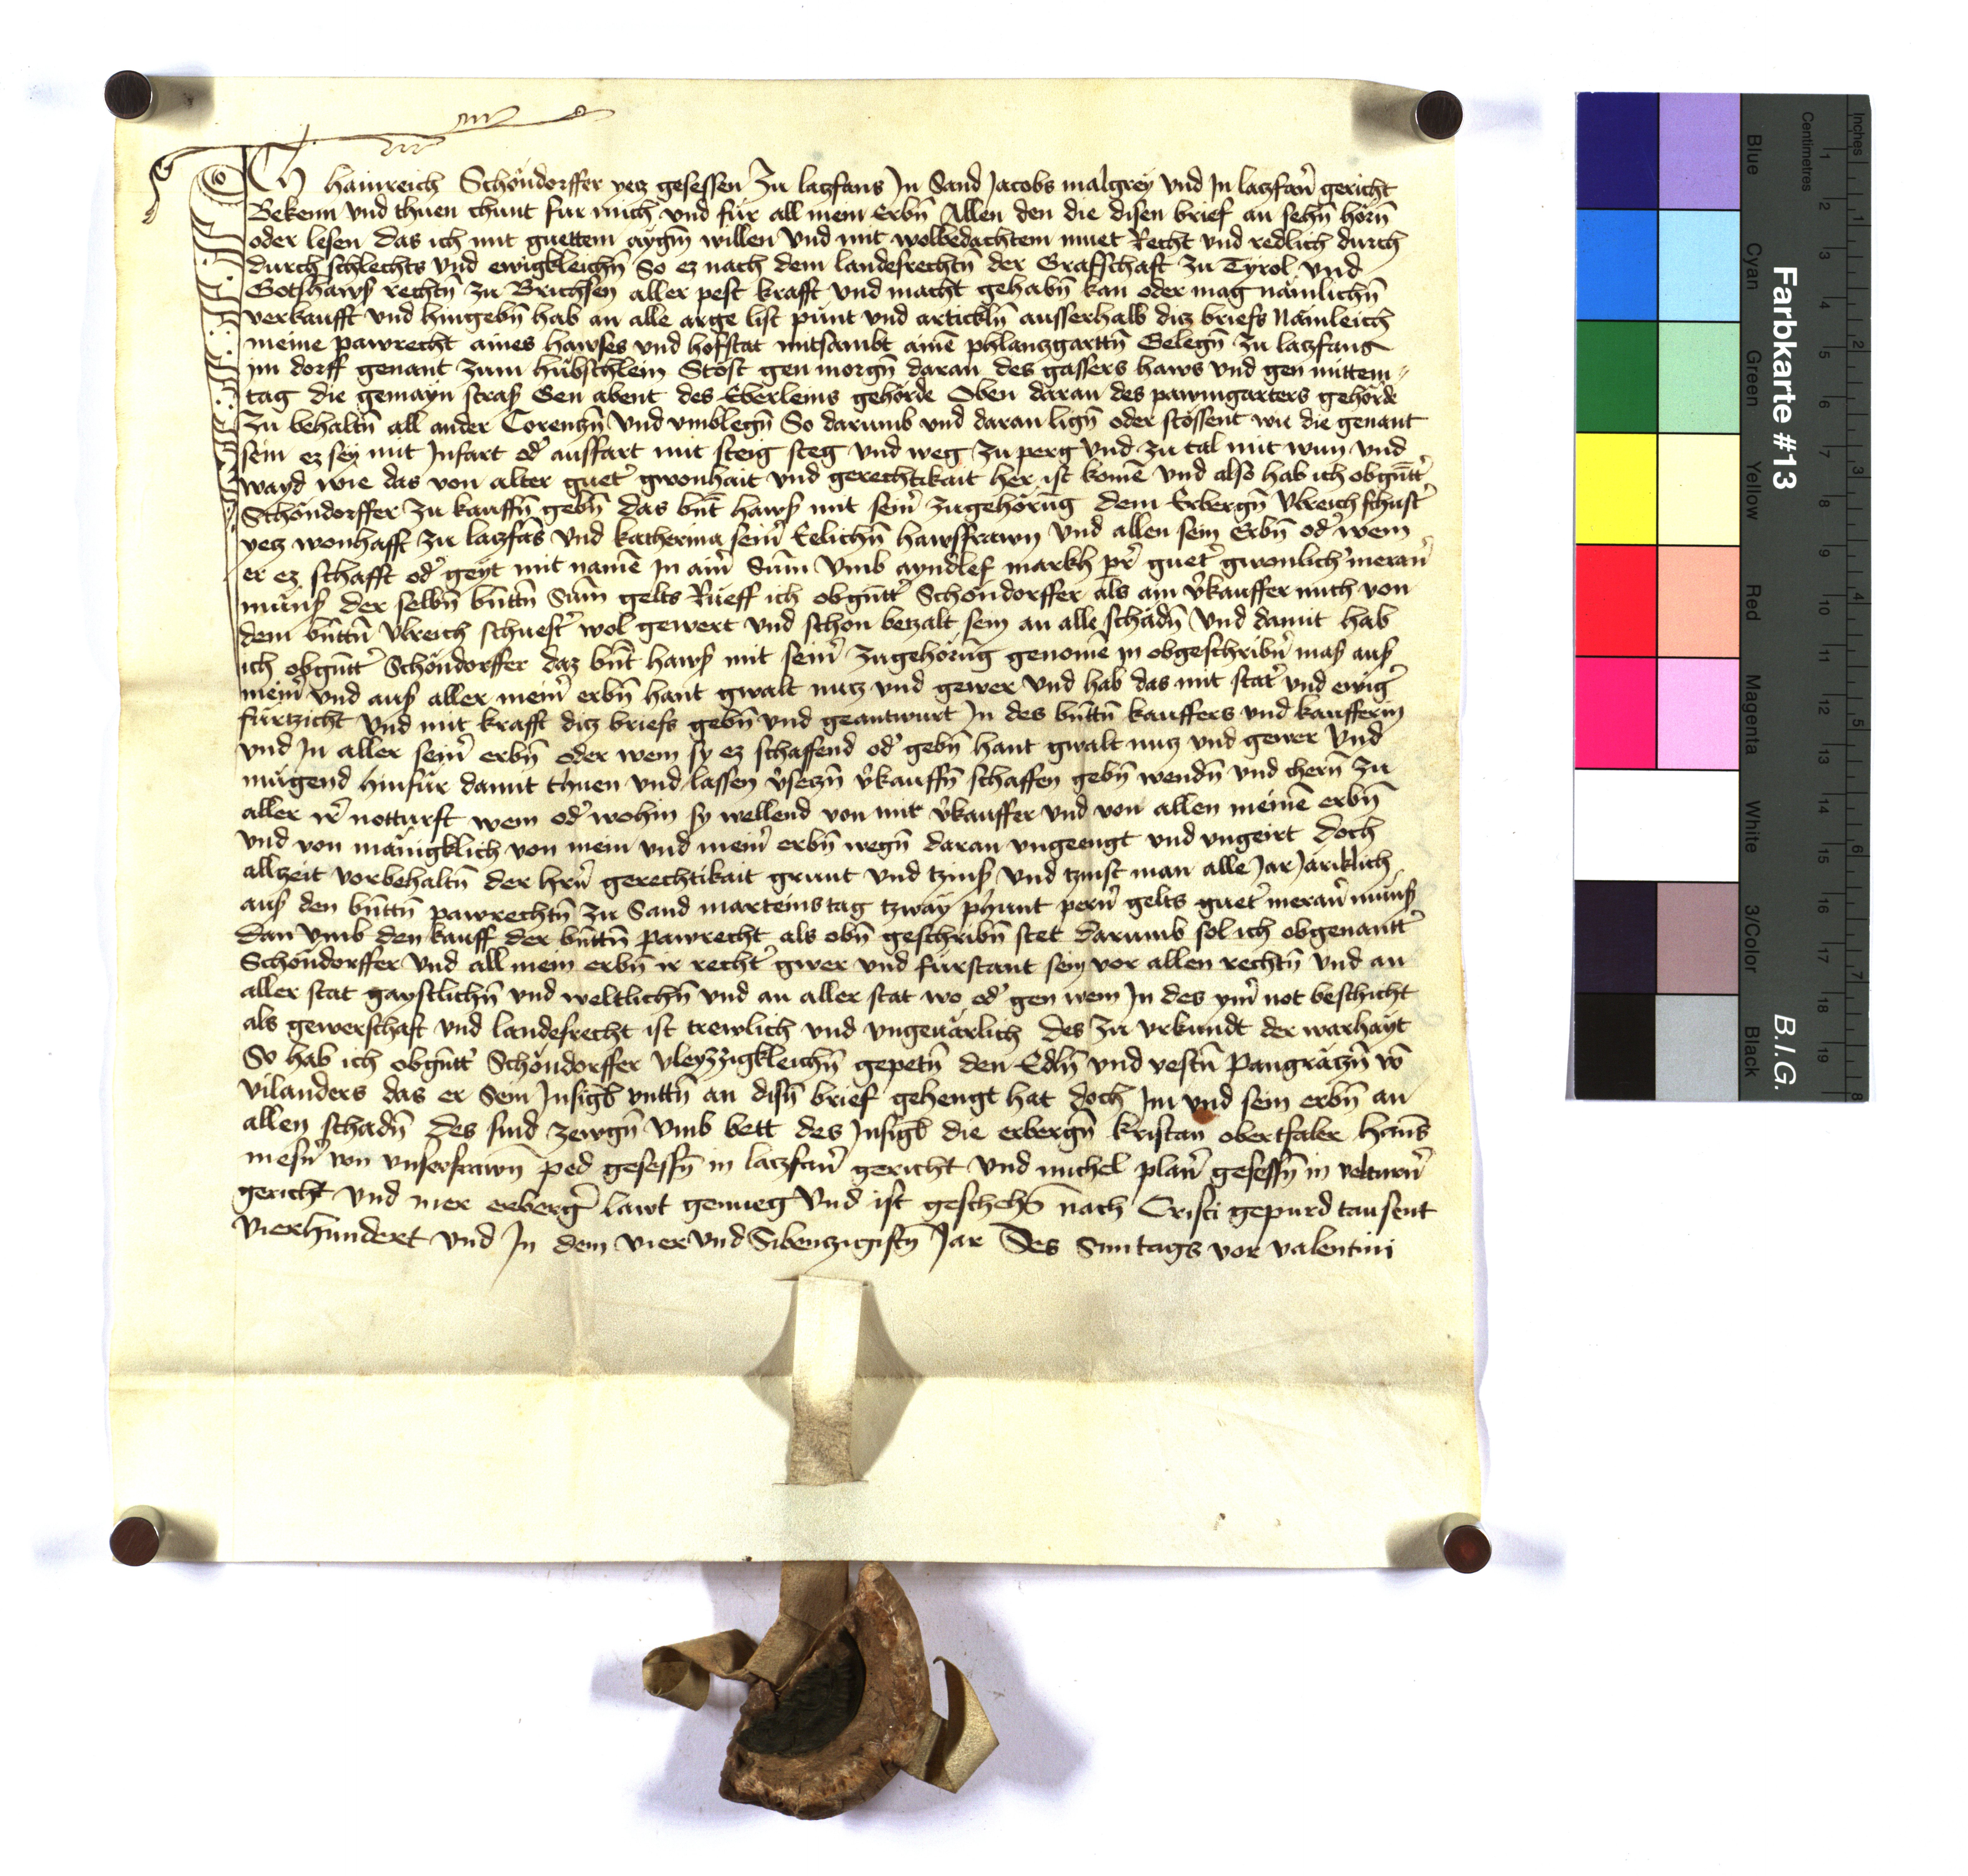 Ich hainreich Schöndorffer yetz gesessen Zu latzfans Jn Sand Jacobs malgrey vnd Jn latzfan̄ gericht
Bekenn vnd thuen chunt für mich vnd für all mein Erbn̄ Allen den die disen brief an sehn̄ hörn̄
oder lesen das ich mit guettem aygm̄ willen vnd mit wolbedachtem muet Recht vnd redlich durch
durch schlechts vnd ewigkleichn̄ So ez nach dem landesrechtn̄ der Grafschaft zu Tyrol vnd
Gotshaws rechtn̄ zu Brichsen aller pest krafft vnd macht gehabn̄ kan oder mag nämlichn̄
verkaufft vnd hingebn̄ hab an alle arge list pünt vnd artickln̄ ausserhalb ditz briefs Nämleich
meine pawrecht aines hawses vnd hofstat mitsambt ainē phlanzgarttn̄ Gelegn̄ Zu latzfans
im dorff genant zum hübschlein Stöst gen morgn̄ daran des gassers haws vnd gen mittem⸗
tag die gemayn stras Gen abent des Eberleins gehörde Oben daran des pawmgarters gehörde
Zu behaltn̄ all ander Corentzn̄ vnd vmblegn̄ So darumb vnd daran lign̄ oder stössent wie die genant
sein ez sey mit Jnfart od' ausfart mit steig steg vnd weg zu perg vnd zu tal mit wun vnd
wayd wie das von alter guet' gwonhait vnd gerechtikait her ist komē vnd also hab ich obgn̄tt'
Schöndorffer zu kauffn̄ gebn̄ das bn̄t haws mit sein' zugehörūg dem Erbergn̄ Vlreich schust'
yetz wonhafft zu latzfās vnd katherina sein' Eelichn̄ hawsfrawn vnd allen sein Erbn̄ od' wem
er ez schafft od' geyt mit namē Jn ain' Sum̄ vmb ayndlef markh pr̄ guet' gwonlich' meran'
müns der selbn̄ bn̄ttn̄ Sum̄ gelts Rueff ich obgn̄tt' Schöndorffer als ain v'kauffer mich von
dem bn̄ttn̄ Vlreich schuest' wol gewert vnd schon betzalt sein an alle schadn̄ vnd damit hab
ich obgn̄tt' Schöndorffer daz bn̄t haws mit sein' zugehörūg genomē in obgeschribn̄ mas aus
mein' vnd aus aller mein' erbn̄ hant gwalt nutz vnd gewer vnd hab das mit stat' vnd ewig'
fürtzicht vnd mit krafft ditz briefs gebn̄ vnd geantwurt Jn des bn̄ttn̄ kauffers vnd kaufferin
vnd Jn aller sein' erbn̄ oder wem sy ez schaffend od' gebn̄ hant gwalt nutz vnd gewer vnd
mügend hinfür damit thuen vnd lassen v'setzn̄ v'kauffn̄ schaffen gebn̄ wendn̄ vnd chern̄ zu
aller ir' notturft wem od' wohin sy wellend von mir v'kauffer vnd von allen meinē erbn̄
vnd von mänigklich von mein vnd mein' erbn̄ wegn̄ daran vngeengt vnd vngeirt doch
allzeit vorbehaltn̄ der hrn̄ gerechtikait grunt vnd tzins vnd tzinst man alle Jar Järiklich
aus den bn̄ttn̄ pawrechtn̄ zu Sand marteinstag tzway phunt pern' gelts guet' meran' müns
dan vmb den kauff der bn̄ttn̄ pawrecht als obn̄ geschribn̄ stet darumb sol ich obgenantt'
Schöndorffer vnd all mein erbn̄ ir recht' gwer vnd fürstant sein vor allen rechtn̄ vnd an
aller stat gaystlichn̄ vnd weltlichn̄ vnd an aller stat wo od' gen wem Jn des ym' not beschicht
als gewerschaft vnd landesrecht ist trewlich vnd vngeuärlich des zu vrkundt der warhayt
So hab ich obgn̄tt' Schöndorffer vleyzzigkleichn̄ gepetn̄ den Edln̄ vnd vestn̄ Pangrätzn̄ vō
vilanders das er Sein Jnsigl vnttn̄ an disn̄ brief gehengt hat doch Jm vnd sein erbn̄ an
allen schadn̄ des sind zewgn̄ vmb bett des Jnsigl die erbergn̄ kristan obertsaler Hanns
mesn' von vnserfrawn̄ ped gesessn̄ in latzfan' gericht vnd michel plan' gesessn̄ in velturn'
gericht vnd mer erberg' lawt genueg vnd ist geschehn̄ nach Cristi gepurd tausent
vierhundert vnd Jn dem vier vnd Sibenzigistn̄ Jar Des Suntags vor valentini
Farbkarte #13
B.I.G.
Blue
Cyan
Green
Yellow
Red
Magenta
White
3/Color
Black
Centimetres
Inches
1
2
3
4
5
6
7
8
9
10
11
12
13
14
15
16
17
18
19
1
2
3
4
5
6
7
8